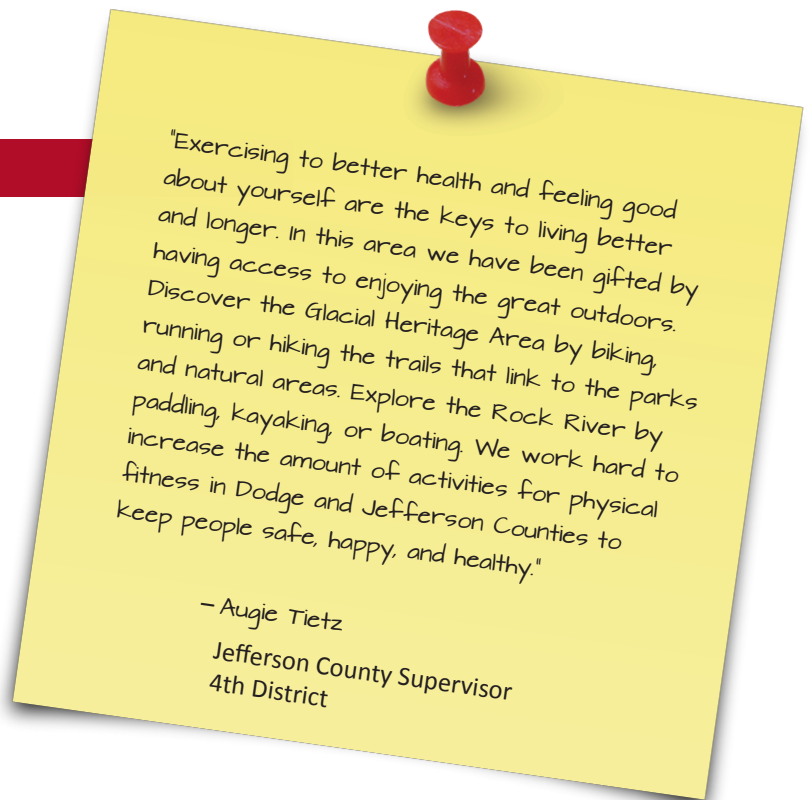 "Exercising to better health and feeling good
about yourself are the keys to living better
and longer. In this area we have been gifted by
having access to enjoying the great outdoors.
Discover the Glacial Heritage Area by biking,
running or hiking the trails that link to the parks
and natural areas. Explore the Rock River by
paddling, kayaking, or boating. We work hard to
increase the amount of activities for physical
fitness in Dodge and Jefferson Counties to
keep people safe, happy, and healthy."
– Augie Tietz
Jefferson County Supervisor
4th District